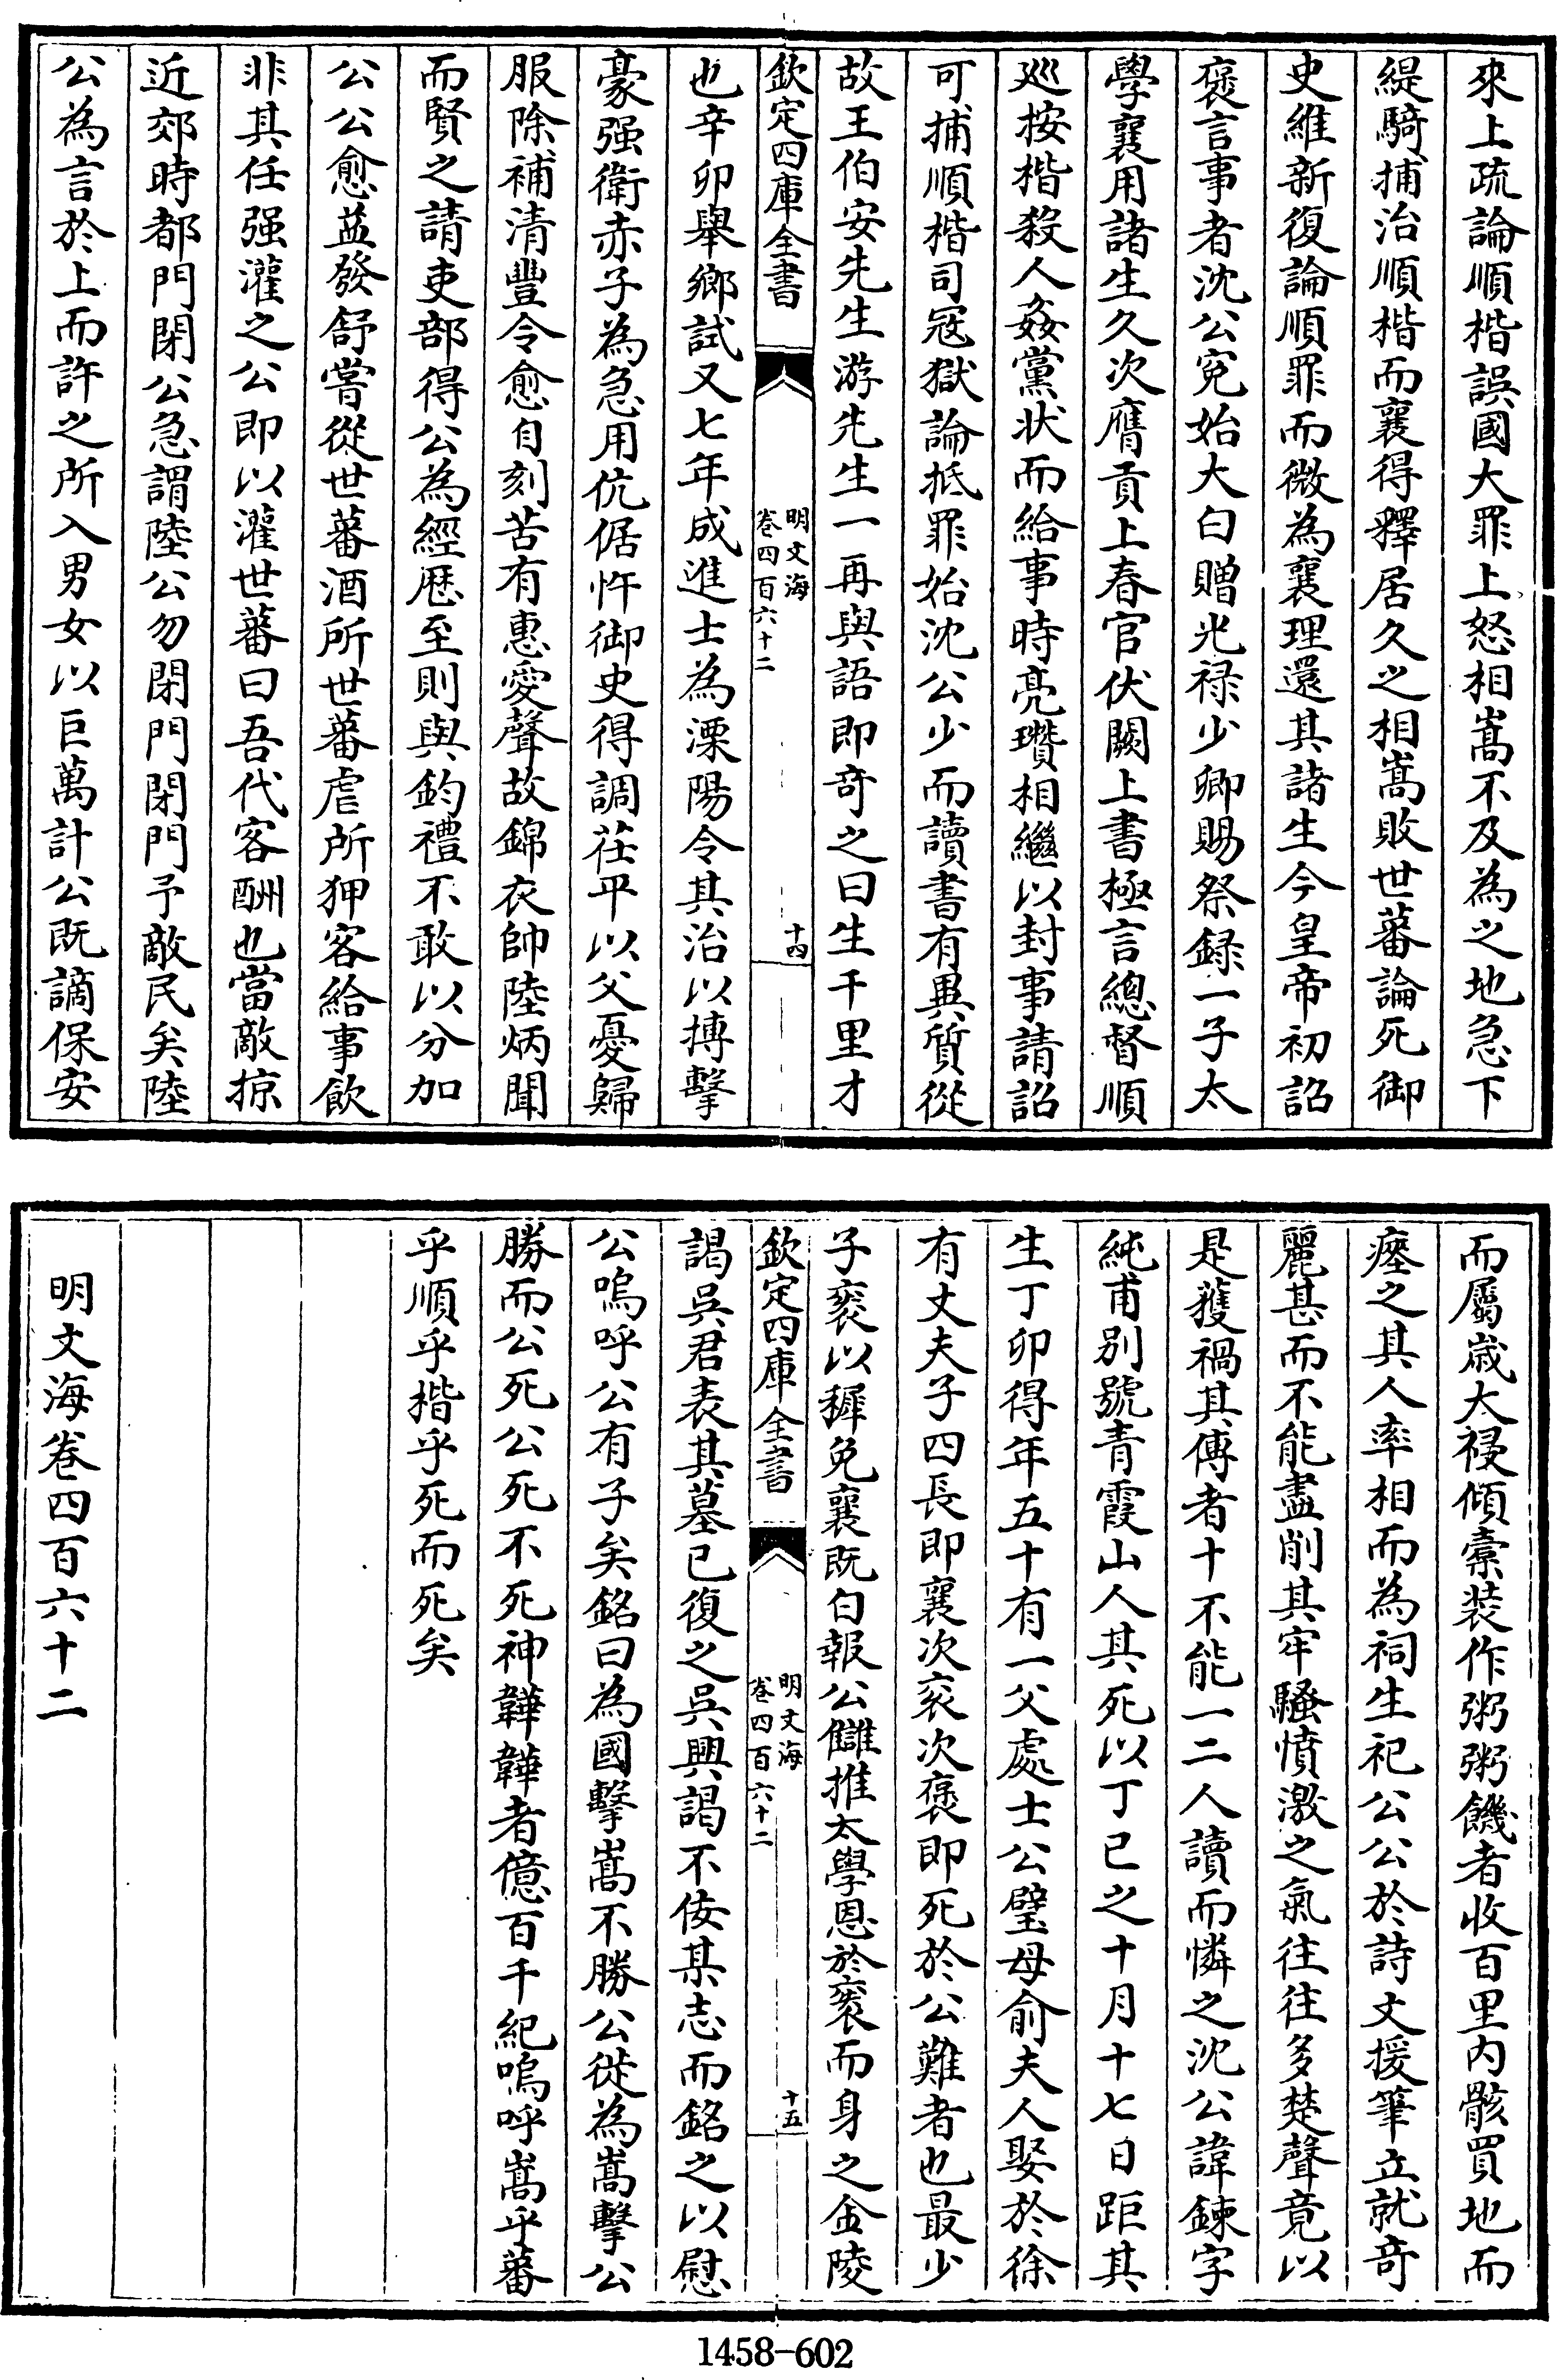 來上疏論順楷誤國大罪上怒相嵩不及為之地急下
緹騎捕治順楷而襄得釋居久之相嵩敗世蕃論死御
史維新復論順罪而微為襄理還其諸生今皇帝初詔
褒言事者沈公寃始大白贈光祿少卿賜祭録一子太
學襄用諸生久次膺貢上春官伏闕上書極言總督順
廵按楷殺人姦黨狀而給事時亮瓚相繼以封事請詔
可捕順楷司冦獄論抵罪始沈公少而讀書有異質從
故王伯安先生游先生一再與語即竒之曰生千里才
欽定四庫全書
明文海
卷四百六十二
十四
也辛卯舉鄉試又七年成進士為溧陽令其治以搏擊
豪强衛赤子為急用伉倨忤御史得調茌平以父憂歸
服除補清豐令愈自刻苦有惠愛聲故錦衣帥陸炳聞
而賢之請吏部得公為經歷至則與鈞禮不敢以分加
公公愈益發舒嘗從世蕃酒所世蕃虐所狎客給事飲
非其任强灌之公即以灌世蕃曰吾代客酬也當敵掠
近郊時都門閉公急謂陸公勿閉門閉門予敵民矣陸
公為言於上而許之所入男女以巨萬計公既謫保安
而屬歲大祲傾橐装作粥粥饑者收百里内骸買地而
瘞之其人率相而為祠生祀公公於詩文援筆立就竒
麗甚而不能盡削其牢騷憤激之氣往往多楚聲竟以
是蒦禍其傳者十不能一二人讀而憐之沈公諱鍊字
純甫別號青霞山人其死以丁巳之十月十七日距其
生丁卯得年五十有一父處士公璧母俞夫人娶於徐
有丈夫子四長即襄次衮次褒即死於公難者也最少
子袠以穉免襄既白報公讎推太學恩於袠而身之金陵
欽定四庫全書
明文海
卷四百六十二
十五
謁吳君表其墓已復之吳興謁不佞某志而銘之以慰
公嗚呼公有子矣銘曰為國擊嵩不勝公徙為嵩擊公
勝而公死公死不死神韡韡者億百千紀嗚呼嵩乎蕃
乎順乎楷乎死而死矣
明文海卷四百六十二
1458-602